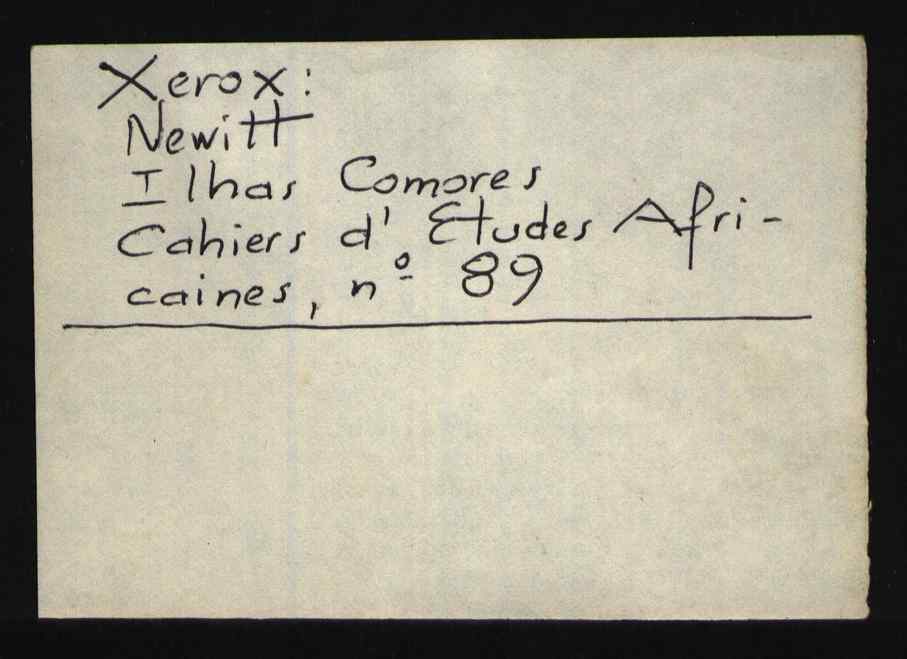 Xerox:
Newitt
Ilhas Comores
Cahiers d'Etudes Afri-
caines, nº 89